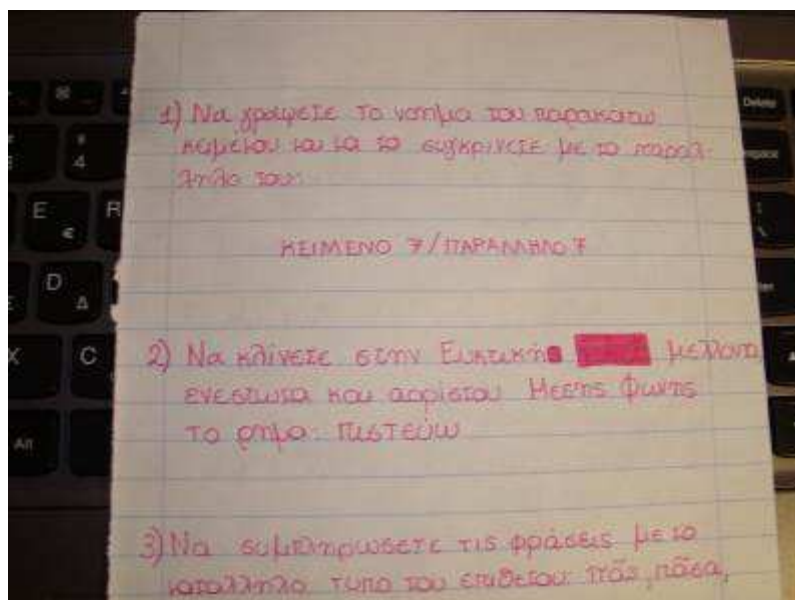 1) Να γράψετε το νοημα του παρακατω
κειμένου και να το συγκρίνετε με το παραλ-
ληλο του:
ΚΕΙΜΕΝΟ 7/ΠΑΡΑΛΛΗΛΟ 7
2) Να κλίνετε στην Ευκτική μελλοντα,
ενεστωτα και αορίστου Μέσης Φωνής
το ρημα: πιστεύω
3) Να συμπληρωσετε τις φράσεις με το
καταλληλο τυπο του επιθετου: πᾶς, πᾶσα,
Delete
E
€
R
4
D
Δ
X
C
Alt